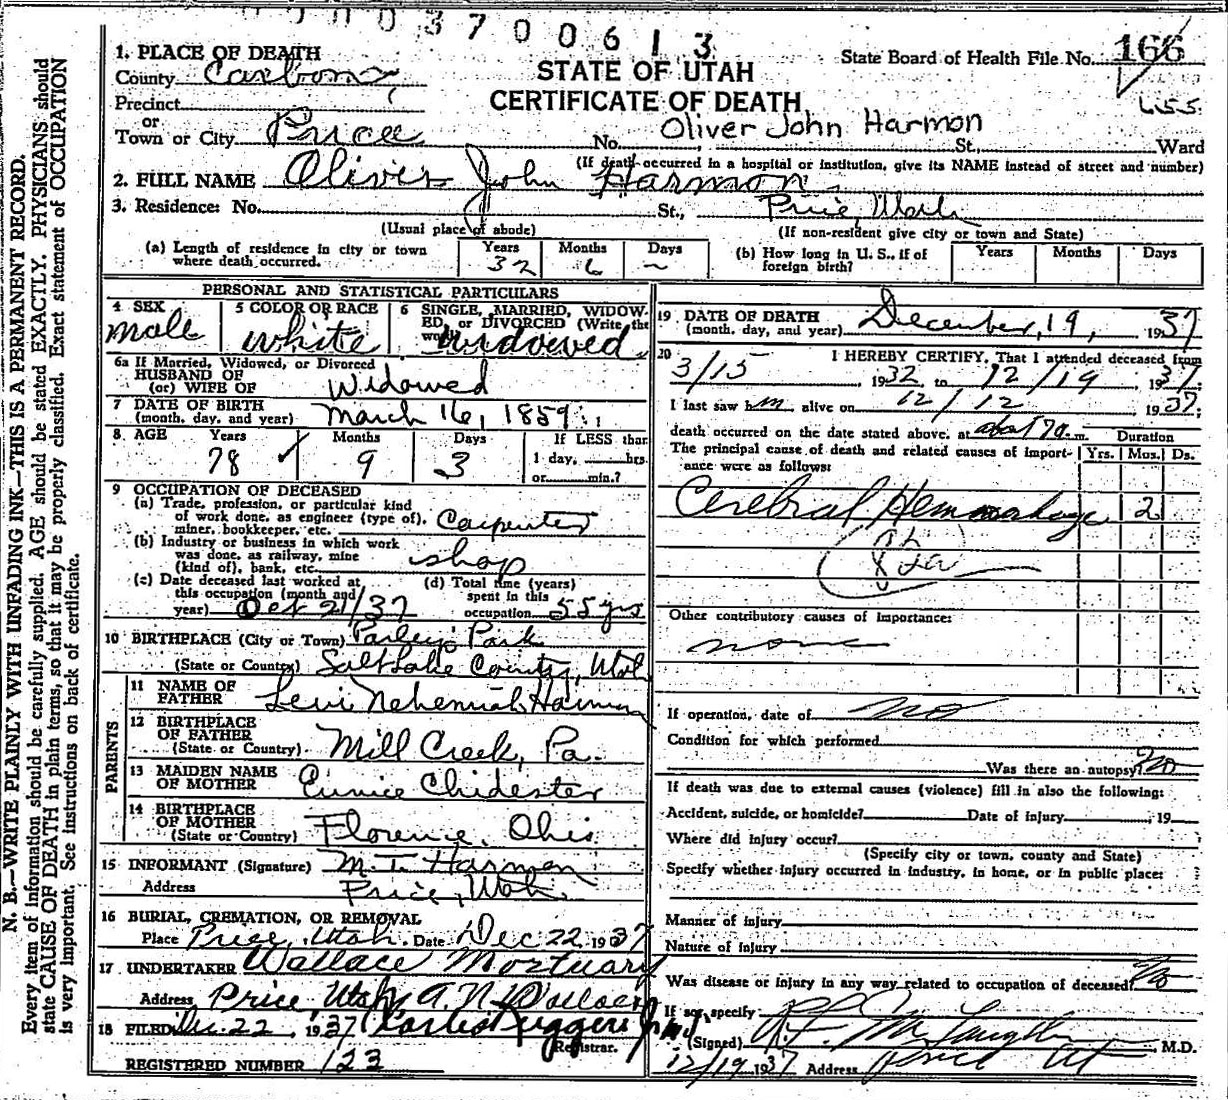 0 0 0 0 3 7 0 0 6 1 3
1. PLACE OF DEATH
County Carbon
Precinct
or
Town or City Price
STATE OF UTAH
CERTIFICATE OF DEATH
State Board of Health File No. 166
Oliver John Harmon
No. St., Ward
(If death occurred in a hospital or institution, give its NAME instead of street and number)
2. FULL NAME Oliver John Harmon
3. Residence: No. St., Price, Utah
(Usual place of abode) (If non-resident give city or town and State)
(a) Length of residence in city or town where death occurred. Years 32 Months 6 Days –
(b) How long in U. S., if of foreign birth? Years Months Days
PERSONAL AND STATISTICAL PARTICULARS
4 SEX male
5 COLOR OR RACE white
6 SINGLE, MARRIED, WIDOWED, or DIVORCED (Write the widowed
6a If Married, Widowed, or Divorced
HUSBAND OF
(or) WIFE OF Widowed
7 DATE OF BIRTH
(month, day, and year) March 16, 1859
8 AGE Years 78 Months 9 Days 3
If LESS than
1 day, hrs.
or min.?
9 OCCUPATION OF DECEASED
(a) Trade, profession, or particular kind
of work done, as engineer (type of), Carpenter
miner, bookkeeper, etc.
(b) Industry or business in which work
was done, as railway, mine
(kind of), bank, etc. shop
(c) Date deceased last worked at
this occupation (month and
year) Oct 21/37
(d) Total time (years)
spent in this
occupation 55 yrs
10 BIRTHPLACE (City or Town) Parleys Park
(State or Country) Salt Lake County, Utah
PARENTS
11 NAME OF
FATHER Levi Nehemiah Harmon
12 BIRTHPLACE
OF FATHER
(State or Country) Mill Creek, Pa.
13 MAIDEN NAME
OF MOTHER Eunice Chidester
14 BIRTHPLACE
OF MOTHER
(State or Country) Florence, Ohio
15 INFORMANT (Signature) M. T. Harmon
Address Price, Utah
16 BURIAL, CREMATION, OR REMOVAL
Place Price, Utah. Date Dec 22 1937
17 UNDERTAKER Wallace Mortuary
Address Price Utah By A. N. Wallace
18 FILED Dec. 22, 1937
Registrar.
REGISTERED NUMBER 123
19 DATE OF DEATH
(month, day, and year) December, 19, 1937
20 I HEREBY CERTIFY, That I attended deceased from
3/15 1932 to 12/19 1937
I last saw him alive on 12/12 1937
death occurred on the date stated above, at about 7 a. m. Duration
The principal cause of death and related causes of importance were as follows: Yrs. Mos. Ds.
Cerebral Hemmorhage 2
Other contributory causes of importance:
none
If operation, date of no
Condition for which performed
Was there an autopsy? no
If death was due to external causes (violence) fill in also the following:
Accident, suicide, or homicide? Date of injury , 19
Where did injury occur?
(Specify city or town, county and State)
Specify whether injury occurred in industry, in home, or in public place:
Manner of injury
Nature of injury
Was disease or injury in any way related to occupation of deceased? no
If so, specify
(Signed) M. D.
12/19 1937 Address Price Ut
N. B.—WRITE PLAINLY WITH UNFADING INK—THIS IS A PERMANENT RECORD.
Every item of information should be carefully supplied. AGE should be stated EXACTLY. PHYSICIANS should
state CAUSE OF DEATH in plain terms, so that it may be properly classified. Exact statement of OCCUPATION
is very important. See instructions on back of certificate.